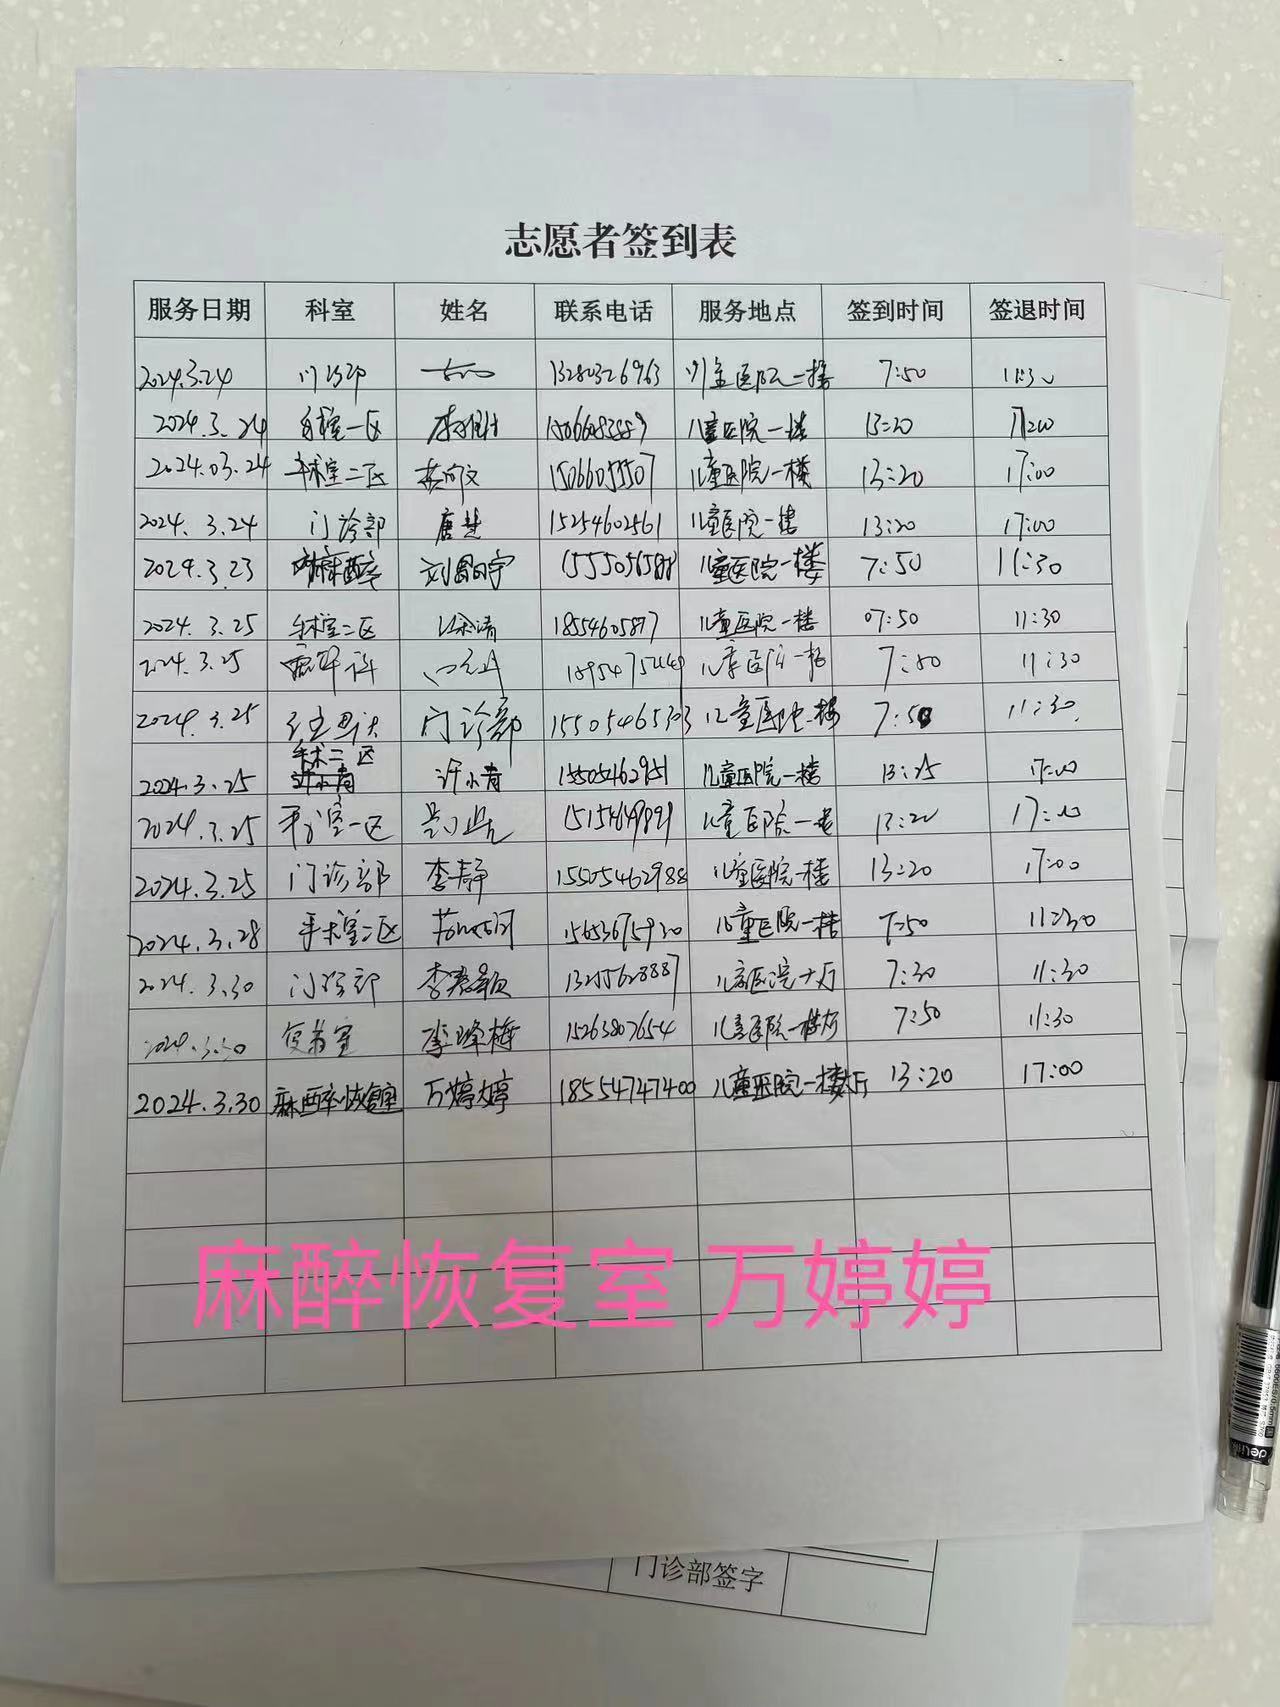 志愿者签到表
服务日期 科室 姓名 联系电话 服务地点 签到时间 签退时间
2024.3.24 门诊部 13280326963 儿童医院一楼 7:50 11:30
2024.3.24 手术室一区 儿童医院一楼 13:20 17:00
2024.03.24 手术室二区 儿童医院一楼 13:20 17:00
2024.3.24 门诊部 唐楚 15254602561 儿童医院一楼 13:20 17:00
2024.3.23 麻醉 儿童医院一楼 7:50 11:30
2024.3.25 手术室二区 18554605877 儿童医院一楼 07:50 11:30
2024.3.25 儿童医院一楼 7:50 11:30
2024.3.25 门诊部 15505465303 儿童医院一楼 7:50 11:30
手术二区
2024.3.25 许小青 15505462951 儿童医院一楼 13:25 17:00
2024.3.25 手术室一区 儿童医院一楼 13:20 17:00
2024.3.25 门诊部 李静 15505462988 儿童医院一楼 13:20 17:00
2024.3.28 手术室二区 15653675920 儿童医院一楼 7:50 11:30
2024.3.30 门诊部 李 儿童医院大厅 7:30 11:30
2024.3.30 李峰梅 15263807654 儿童医院一楼大厅 7:50 11:30
2024.3.30 麻醉恢复室 万婷婷 18554747400 儿童医院一楼大厅 13:20 17:00
麻醉恢复室 万婷婷
门诊部签字
deli